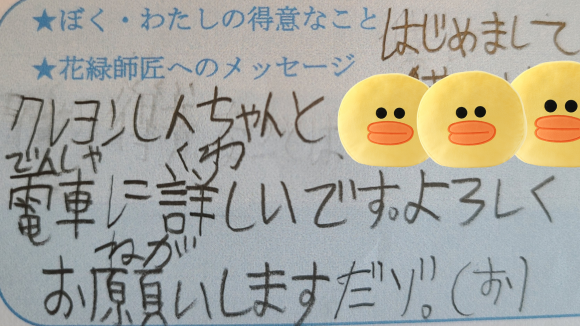 ★ぼく・わたしの得意なこと
はじめまして
★花緑師匠へのメッセージ
クレヨンしんちゃんと、
でんしゃ くわ
電車に詳しいです。よろしく
ねが
お願いしますだゾ。(お)